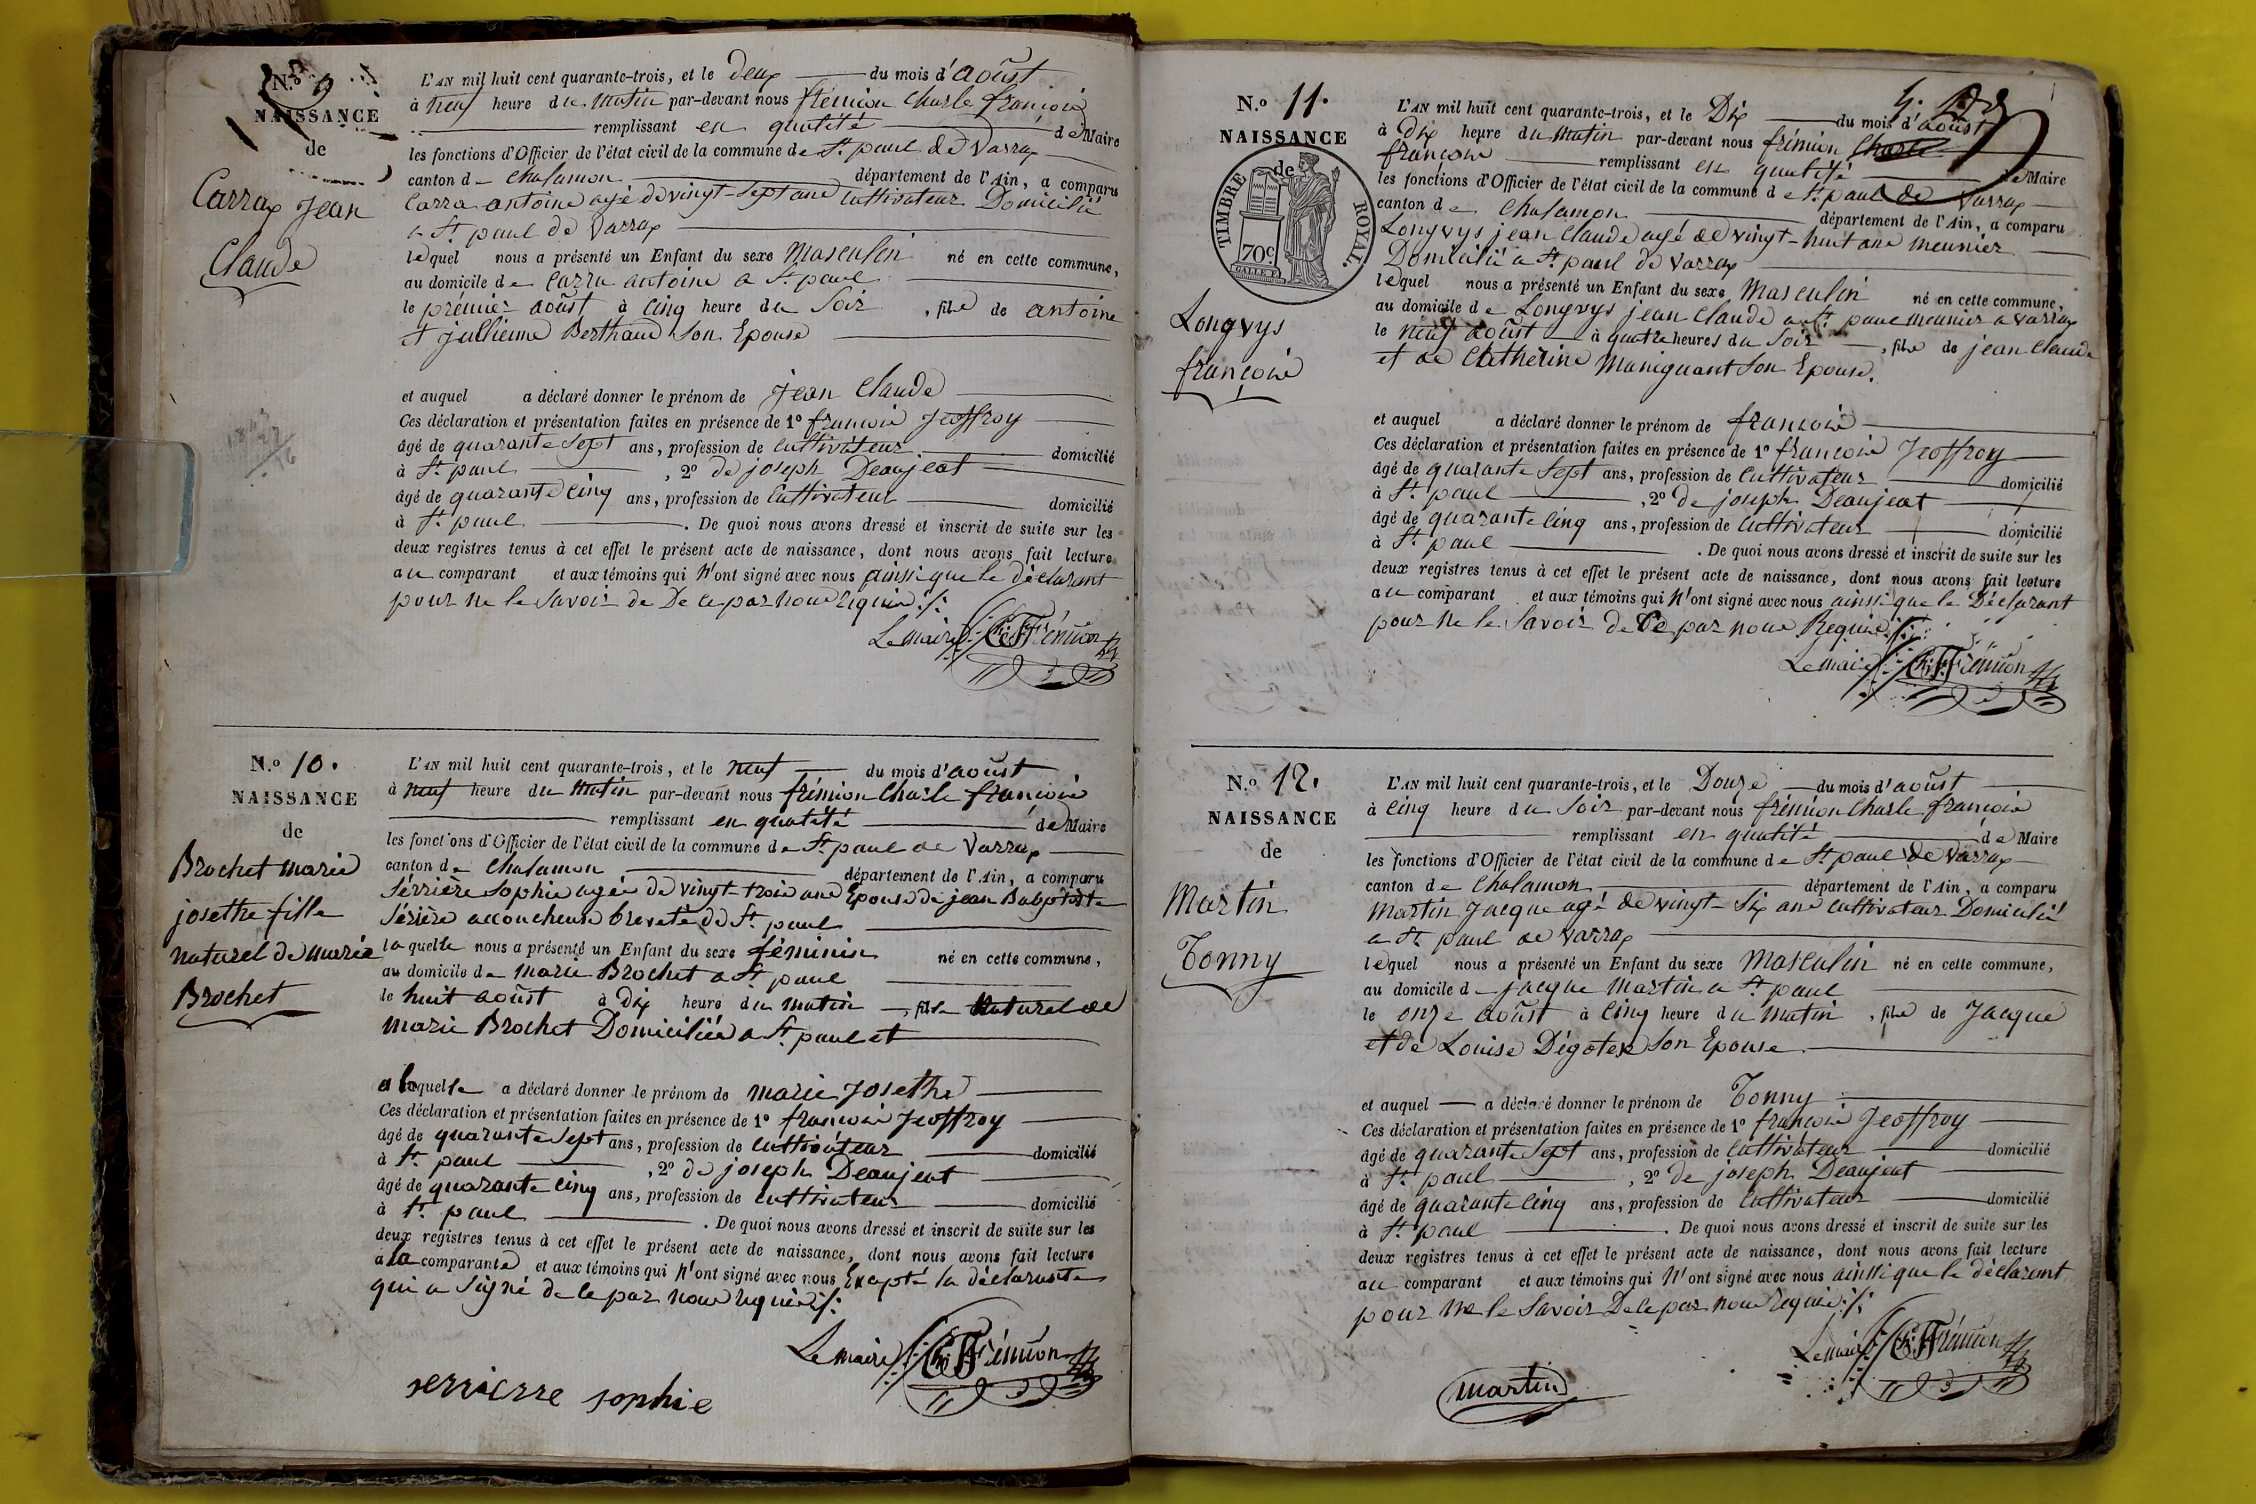 N.º 9
NAISSANCE
de
Carrap Jean
Claude
L'AN mil huit cent quarante-trois, et le deux du mois d'aoûst
à neuf heure du matin par-devant nous frémion Charle françois
remplissant en qualité de Maire
les fonctions d'Officier de l'état civil de la commune de St paul de Varrax
canton de Chalamon département de l'Ain, a comparu
Carra antoine agé de vingt-sept ans Cultivateur Domicilié
a St paul de Varrax
lequel nous a présenté un Enfant du sexe Masculin né en cette commune,
au domicile de Carra antoine a St paul
le prémier aoûst à cinq heure du Soir, fils de antoine
et jullienne Berthaud Son Epouse
et auquel a déclaré donner le prénom de Jean Claude
Ces déclaration et présentation faites en présence de 1º françois Jeoffroy
âgé de quarante Sept ans, profession de Cultivateur domicilié
à St paul, 2º de joseph Deaujeat
âgé de quarante cinq ans, profession de Cultivateur domicilié
à St paul. De quoi nous avons dressé et inscrit de suite sur les
deux registres tenus à cet effet le présent acte de naissance, dont nous avons fait lecture
au comparant et aux témoins qui N'ont signé avec nous ainsi que le déclarant
pour ne le Savoir de De ce par nous requis
Le maire Ch. F. Frémion
N.º 10.
NAISSANCE
de
Brochet marie
josethe fille
naturel de marie
Brochet
L'AN mil huit cent quarante-trois, et le neuf du mois d'aoûst
à neuf heure du Matin par-devant nous frémion Charle françois
remplissant en qualité de Maire
les fonctions d'Officier de l'état civil de la commune de St paul de Varrax
canton de Chalamon département de l'Ain, a comparu
Sérrière Sophie agée de vingt-trois ans Epouse de jean Babptiste
Sérière accoucheuse breveté de St paul
laquelle nous a présenté un Enfant du sexe féminin né en cette commune,
au domicile de marie Brochet a St paul
le huit aoûst à dix heure du matin, fille Naturel de
marie Brochet Domiciliée a St paul et
a laquelle a déclaré donner le prénom de marie Josethe
Ces déclaration et présentation faites en présence de 1º françois Jeoffroy
âgé de quarante Sept ans, profession de Cultivateur domicilié
à St paul, 2º de joseph Deaujeat
âgé de quarante cinq ans, profession de cultivateur domicilié
à St paul. De quoi nous avons dressé et inscrit de suite sur les
deux registres tenus à cet effet le présent acte de naissance, dont nous avons fait lecture
a la comparante et aux témoins qui N'ont signé avec nous Excepté la déclarante
qui a Signé de ce par nous requis
Le maire Ch. F. Frémion
serrierre sophie
N.º 11.
NAISSANCE
de
TIMBRE ROYAL.
70c
Longvys
françois
L'AN mil huit cent quarante-trois, et le Dix du mois d'aoûst
à dix heure du Matin par-devant nous frémion Charle
françois remplissant en qualité de Maire
les fonctions d'Officier de l'état civil de la commune de St paul de Varrax
canton de Chalamon département de l'Ain, a comparu
Longvys jean Claude agé de vingt-huit ans meunier
Domicilié a St paul de Varrax
lequel nous a présenté un Enfant du sexe Masculin né en cette commune,
au domicile de Longvys jean Claude a St paul meunier a Varrax
le neuf aoûst à quatre heures du Soir, fils de jean Claude
et de Catherine Maniguant Son Epouse.
et auquel a déclaré donner le prénom de françois
Ces déclaration et présentation faites en présence de 1º françois Jeoffroy
âgé de quarante Sept ans, profession de Cultivateur domicilié
à St paul, 2º de joseph Deaujeat
âgé de quarante cinq ans, profession de Cultivateur domicilié
à St paul. De quoi nous avons dressé et inscrit de suite sur les
deux registres tenus à cet effet le présent acte de naissance, dont nous avons fait lecture
au comparant et aux témoins qui N'ont signé avec nous ainsi que le Déclarant
pour ne le Savoir de Ce par nous Requis
Le maire Ch. F. Frémion
N.º 12.
NAISSANCE
de
Martin
Tonny
L'AN mil huit cent quarante-trois, et le Douze du mois d'aoûst
à cinq heure du Soir par-devant nous frémion Charle françois
remplissant en qualité de Maire
les fonctions d'Officier de l'état civil de la commune de St paul de Varrax
canton de Chalamon département de l'Ain, a comparu
Martin Jacque agé de vingt-Six ans cultivateur Domicilié
a St paul de Varrax
lequel nous a présenté un Enfant du sexe Masculin né en cette commune,
au domicile de jacque Martin a St paul
le onze aoûst à Cinq heure du matin, fils de Jacque
et de Louise Dégotex Son Epouse
et auquel a déclaré donner le prénom de Tonny
Ces déclaration et présentation faites en présence de 1º françois Jeoffroy
âgé de quarante Sept ans, profession de Cultivateur domicilié
à St paul, 2º de joseph Deaujeat
âgé de quarante cinq ans, profession de Cultivateur domicilié
à St paul. De quoi nous avons dressé et inscrit de suite sur les
deux registres tenus à cet effet le présent acte de naissance, dont nous avons fait lecture
au comparant et aux témoins qui N'ont signé avec nous ainsi que le déclarant
pour ne le Savoir De ce par nous requis
Le maire Ch. F. Frémion
martin